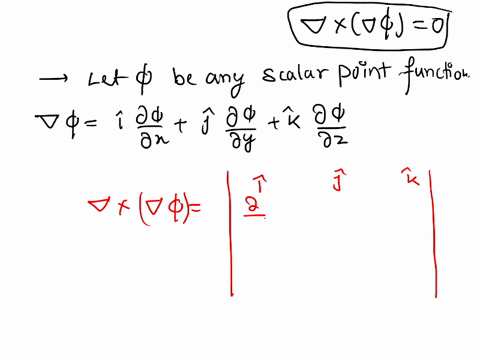 ∇×(∇ϕ)=0
→ Let ϕ be any scalar point function.
∇ϕ = î ∂ϕ/∂x + ĵ ∂ϕ/∂y + k̂ ∂ϕ/∂z
î ĵ k̂
∇×(∇ϕ)= | ∂ |